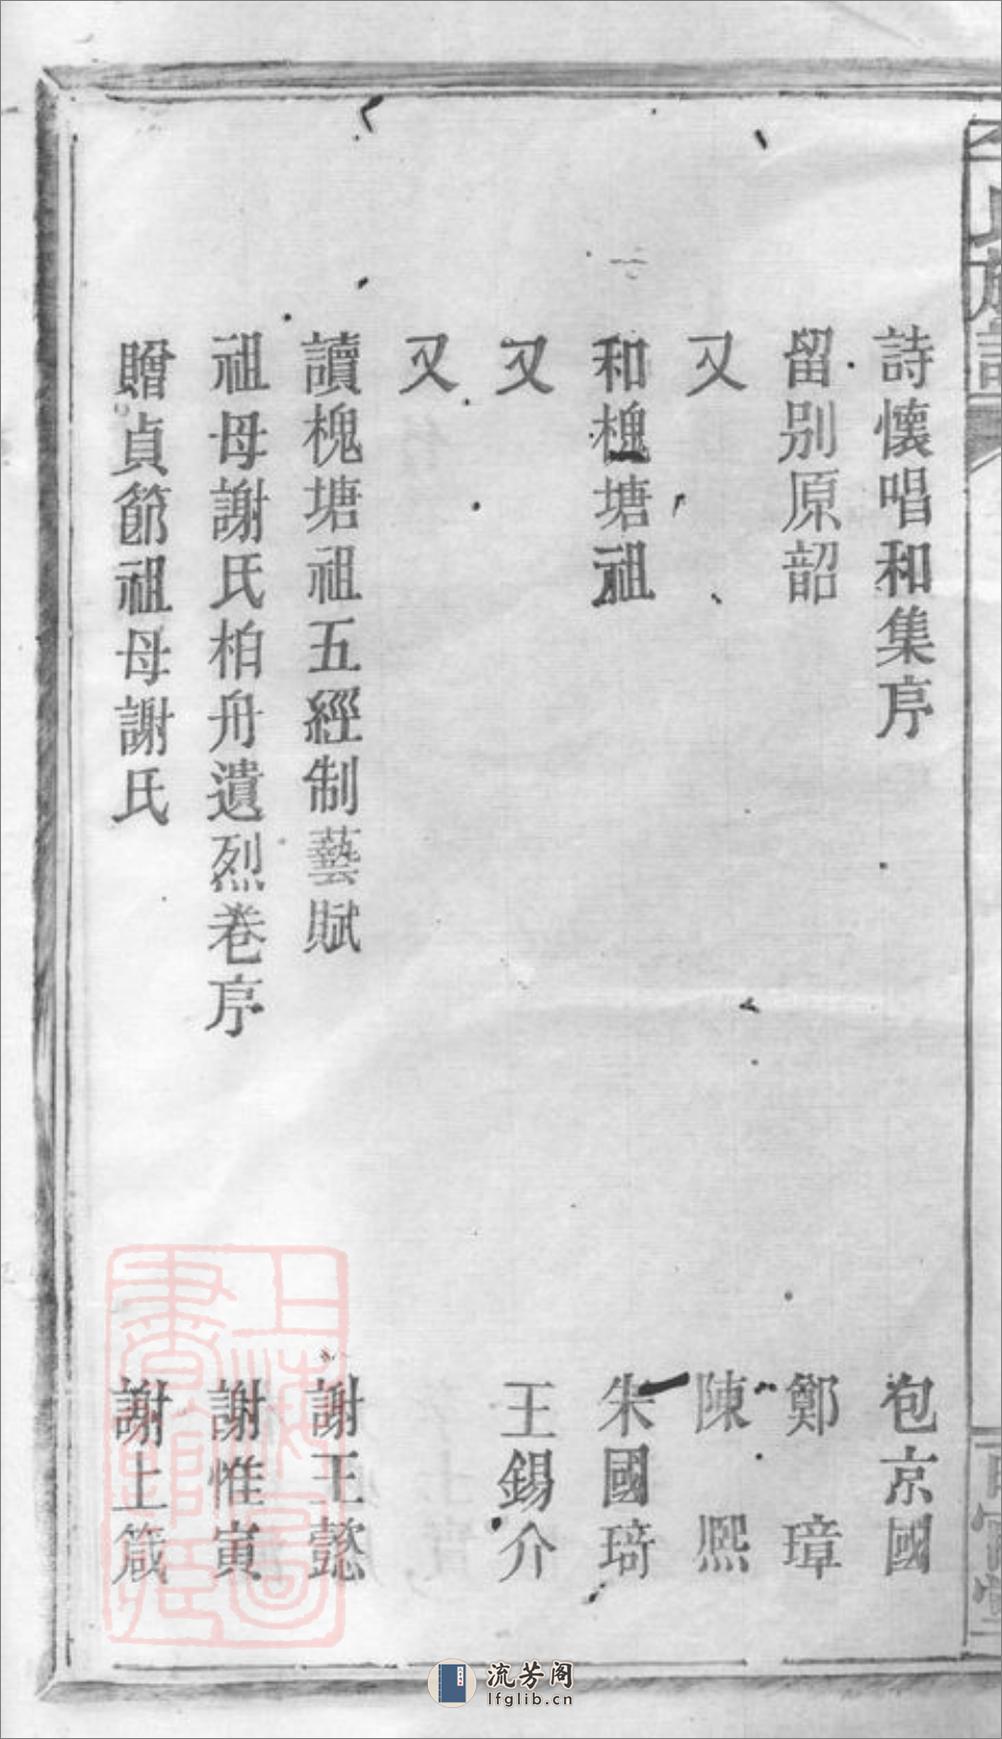 詩懷唱和集序 包京國
留别原韶 鄭璋
又 陳熙
和槐塘祖 朱國琦
又 王錫介
又
讀槐塘祖五經制藝賦 謝王懿
祖母謝氏柏舟遺烈卷序 謝惟寅
贈貞節祖母謝氏 謝上箴
氏族譜
上海圖書館藏
流芳阁
lfglib.cn